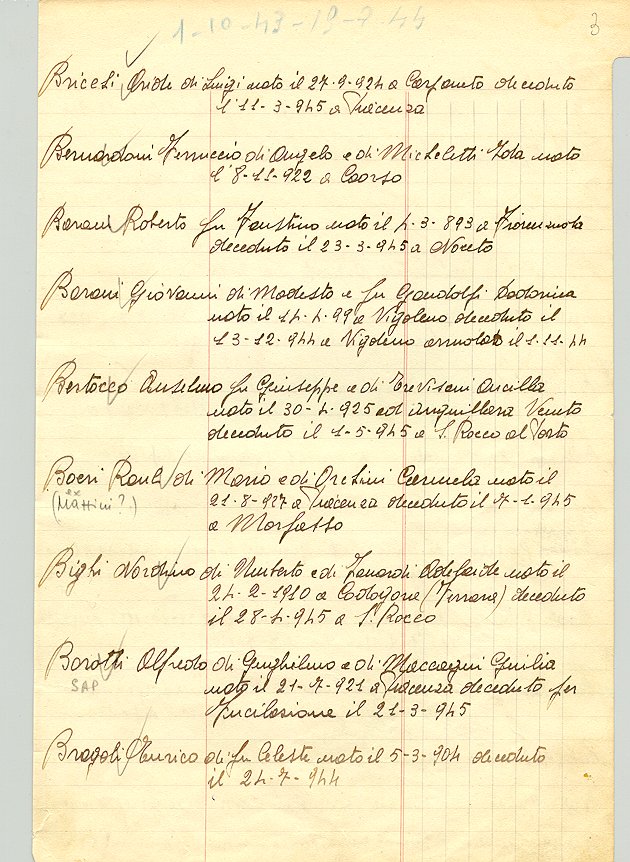 1-10-43-19-7-44
3
Bricchi Oride di Luigi nato il 27-9-924 a Carpaneto deceduto
l'11-3-945 a Piacenza
Bernardoni Ferruccio di Angelo e di Micheletti Iola nato
l'8-11-922 a Caorso
Barani Roberto fu Faustino nato il 4-3-893 a Fiorenzuola
deceduto il 23-3-945 a Noceto
Barani Giovanni di Modesto e fu Gandolfi
nato il 14-4-99 a Vigoleno deceduto il
13-12-944 a Vigoleno arruolato il 1-11-44
Bertocco Anselmo fu Giuseppe e di Trevisani Ancilla
nato il 30-4-925 ad Anguillara Veneto
deceduto il 1-5-945 a S. Rocco al Porto
Boeri Raul di Mario e di Orsini Carmela nato il
(ex Mattini?) 21-8-927 a Piacenza deceduto il 7-1-945
a Morfasso
Bighi Nordino di Umberto e di Zanardi Adelaide nato il
24-2-1910 a Codogone (Ferrara) deceduto
il 28-4-945 a S. Rocco
Borotti Alfredo di Guglielmo e di Maccagni Giulia
SAP nato il 21-7-921 a Piacenza deceduto per
Fucilazione il 21-3-945
Bragoli Enrico di fu Celeste nato il 5-3-904 deceduto
il 24-7-944